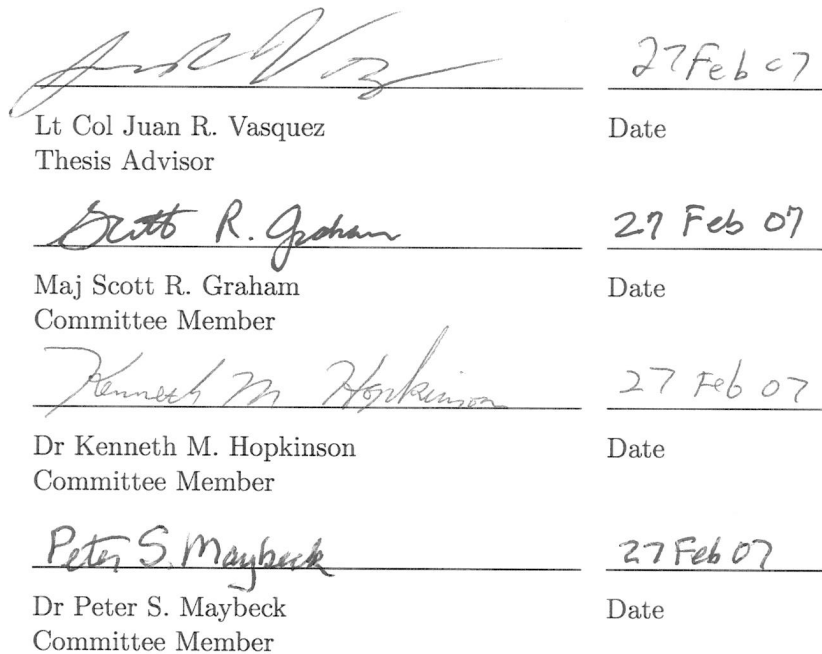 27 Feb 07
Lt Col Juan R. Vasquez Date
Thesis Advisor
Scott R. Graham 27 Feb 07
Maj Scott R. Graham Date
Committee Member
Kenneth M Hopkinson 27 Feb 07
Dr Kenneth M. Hopkinson Date
Committee Member
Peter S. Maybeck 27 Feb 07
Dr Peter S. Maybeck Date
Committee Member